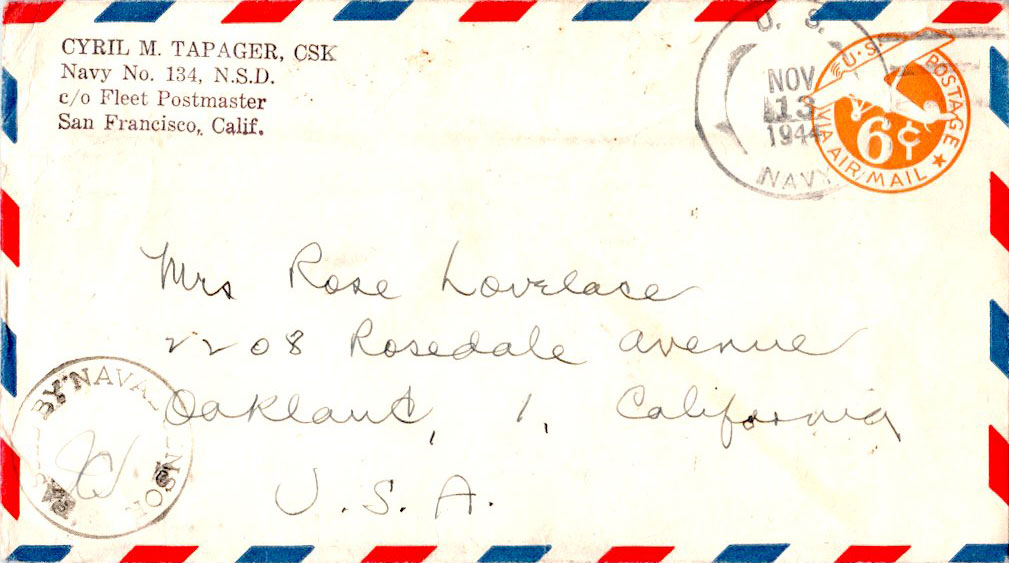 CYRIL M. TAPAGER, CSK
Navy No. 134, N.S.D.
c/o Fleet Postmaster
San Francisco, Calif.
U. S.
NOV
13
1944
NAVY
U.S. POSTAGE
6¢
VIA AIR MAIL
Mrs Rose Lovelace
2208 Rosedale Avenue
Oakland, 1, California
U.S.A.
BY NAVA